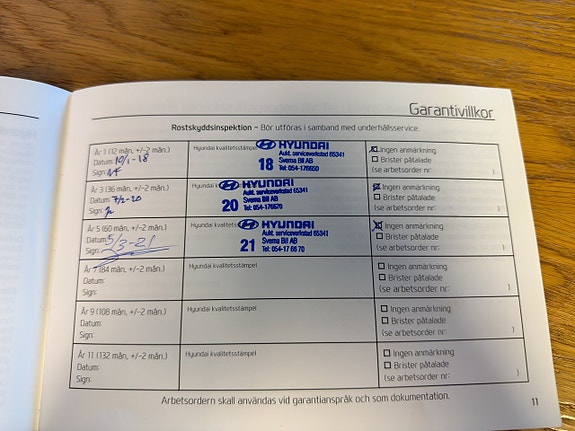 Garantivillkor
Rostskyddsinspektion – Bör utföras i samband med underhållsservice.
År 1 (12 mån, +/-2 mån.)
Datum: 10/1-18
Sign:
Hyundai kvalitetsstämpel
HYUNDAI
Aukt. serviceverkstad 65341
18 Svema Bil AB
Tel: 054-176650
Ingen anmärkning
Brister påtalade
(se arbetsorder nr: )
År 3 (36 mån, +/-2 mån.)
Datum: 7/2-20
Sign:
HYUNDAI
Aukt. serviceverkstad 65341
20 Svema Bil AB
Tel: 054-176670
Ingen anmärkning
Brister påtalade
(se arbetsorder nr: )
År 5 (60 mån, +/-2 mån.)
Datum: 5/3-21
Sign:
Hyundai kvalitetsstämpel
HYUNDAI
Aukt. serviceverkstad 65341
21 Svema Bil AB
Tel: 054-17 66 70
Ingen anmärkning
Brister påtalade
(se arbetsorder nr: )
År 7 (84 mån, +/-2 mån.)
Datum:
Sign:
Hyundai kvalitetsstämpel
Ingen anmärkning
Brister påtalade
(se arbetsorder nr: )
År 9 (108 mån, +/-2 mån.)
Datum:
Sign:
Hyundai kvalitetsstämpel
Ingen anmärkning
Brister påtalade
(se arbetsorder nr: )
År 11 (132 mån, +/-2 mån.)
Datum:
Sign:
Hyundai kvalitetsstämpel
Ingen anmärkning
Brister påtalade
(se arbetsorder nr: )
Arbetsordern skall användas vid garantianspråk och som dokumentation.
11